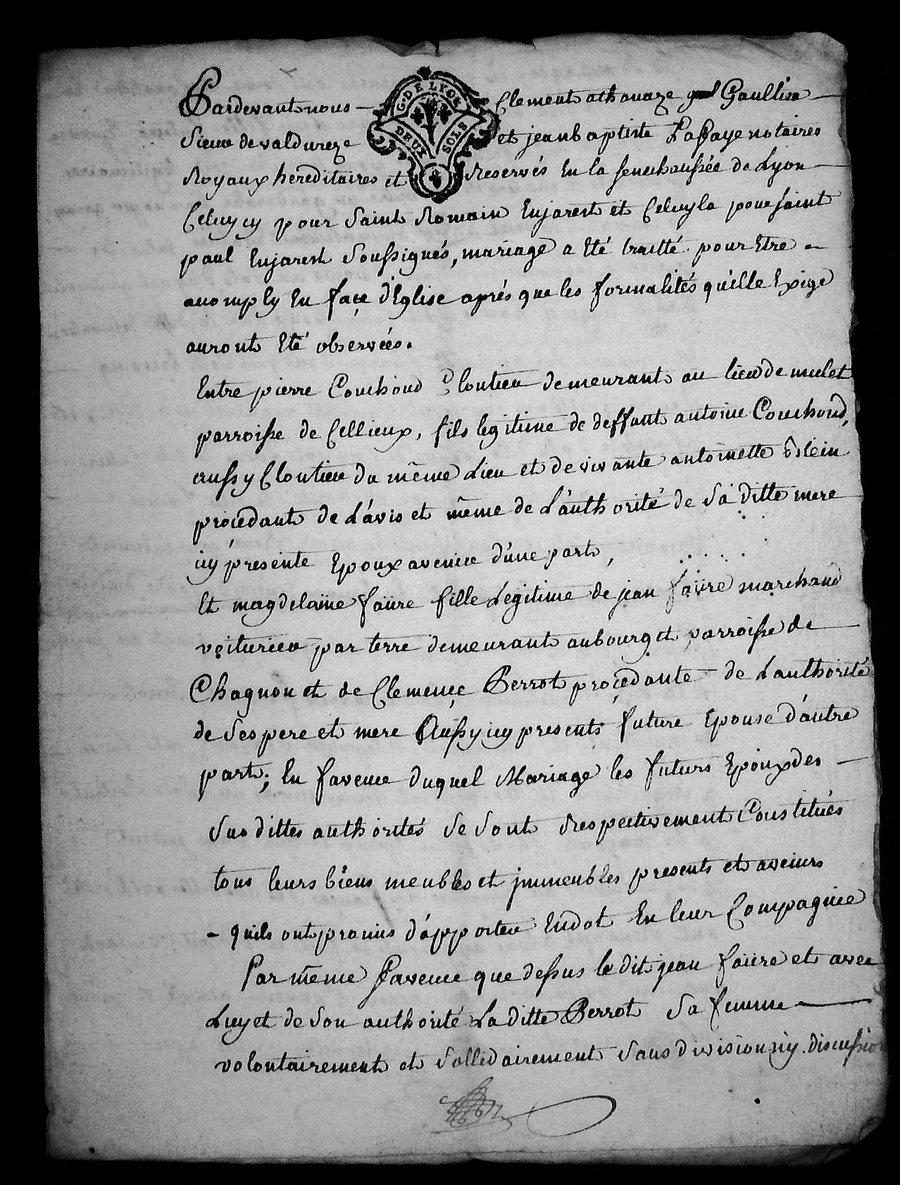 Pardevant nous — Clement athanaze Gaullier —
G. DE LYON
DEUX SOLS
Sieur de valdureze et jean baptiste Lafaye notaires
Royaux hereditaires et Reservés En la senechaussée de Lyon —
Celuycy pour Saint Romain Enjarest et Celuyla pour saint
paul Enjarest Soussignés, mariage a Eté traitté pour Etre
accomply En façe d'Eglise aprés que les formalités qu'elle Exige
auront Eté observées.
Entre pierre Couchoud Cloutier demeurant au lieu de mulet
parroisse de Cellieux, fils legitime de deffunt antoine Couchoud,
aussy Cloutier du même Lieu et de vivante antoinette
procedant de L'avis et même de L'authorité de Sa ditte mere
icy presente Epoux avenir d'une part,
Et magdelaine faure fille Legitime de jean faure marchand
voiturier par terre demeurant au bourg et parroisse de
Chagnon et de Clemence Perrot procedante de L'authorité
de Ses pere et mere Aussy icy presents future Epouse d'autre
part; En faveur duquel Mariage les futurs Epoux des —
Susdittes authorités Se Sont Respectivement Constitués
tous leurs biens meubles et immeubles presents et avenirs
- quils ont promis d'apporter Endot En leur Compagnie
Par même faveur que dessus le dit jean faure et avec
Luy et de Son authorité La ditte Perrot Sa femme —
volontairement et Sollidairement Sans division ny discussion